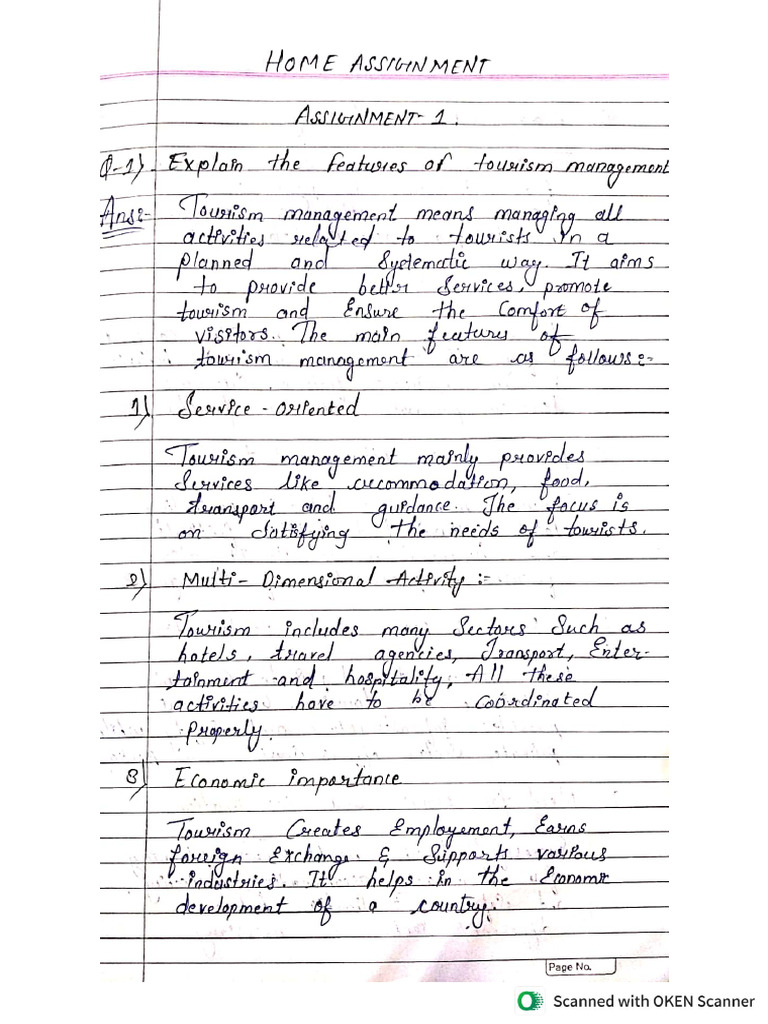 HOME ASSIGNMENT
ASSIGNMENT- 1.
Q-1) Explain the features of tourism management
Ans:- Tourism management means managing all
activities related to tourists in a
planned and systematic way. It aims
to provide better services, promote
tourism and Ensure the Comfort of
visitors. The main features of
tourism management are as follows:-
1) Service - oriented
Tourism management mainly provides
services like accommodation, food,
transport and guidance. The focus is
on satisfying the needs of tourists.
2) Multi- Dimensional Activity :-
Tourism includes many Sectors Such as
hotels, travel agencies, Transport, Enter-
tainment and hospitality, All these
activities have to be coordinated
Properly.
3) Economic importance
Tourism Creates Employement, Earns
foreign Exchange & Supports various
industries. It helps in the Economic
development of a country.
Page No.
Scanned with OKEN Scanner